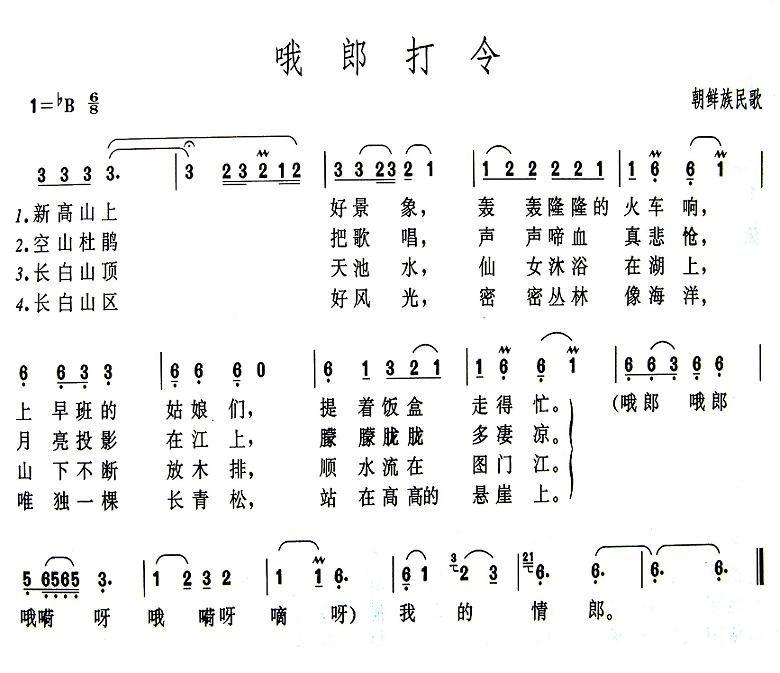 哦郎打令
1=♭B 6/8
朝鲜族民歌
3 3 3 3. | 3 2 3 2 1 2 | 3 3 2 3 2 1 | 1 2 2 2 2 1 | 1 6 6 1 |
1.新高山上 好景象， 轰 轰隆隆的 火车响，
2.空山杜鹃 把歌唱， 声 声啼血 真悲怆，
3.长白山顶 天池水， 仙 女沐浴 在湖上，
4.长白山区 好风光， 密 密丛林 像海洋，
6 6 3 3 | 6 6 6 0 | 6 1 3 2 1 | 1 6 6 1 | 6 6 3 6 6
上早班的 姑娘们， 提着饭盒 走得忙。 (哦郎 哦郎
月亮投影 在江上， 朦朦胧胧 多凄凉。
山下不断 放木排， 顺水流在 图门江。
唯独一棵 长青松， 站在高高的 悬崖上。
5 6 5 6 5 3. | 1 2 3 2 | 2 2 1 1 6. | 6 1 3 2 3 | 21 6. 6. | 6. 6. ‖
哦嗬 呀 哦 嗬呀 嘀 呀) 我 的 情 郎。